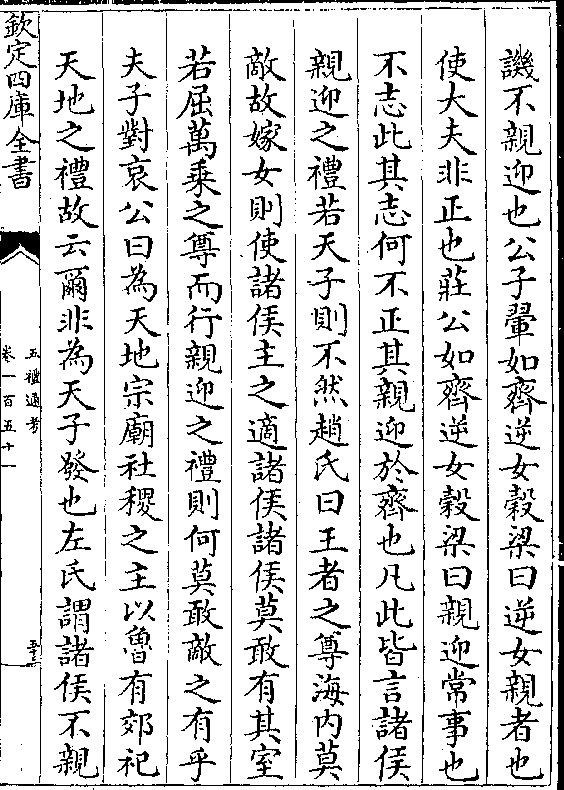 譏不親迎也公子翬如齊逆女穀梁曰逆女親者也
使大夫非正也莊公如齊逆女穀梁曰親迎常事也
不志此其志何不正其親迎於齊也凡此皆言諸侯
親迎之禮若天子則不然趙氏曰王者之尊海内莫
敵故嫁女則使諸侯主之適諸侯諸侯莫敢有其室
若屈萬乗之尊而行親迎之禮則何莫敢敵之有乎
夫子對哀公曰為天地宗廟社稷之主以魯有郊祀
天地之禮故云爾非為天子發也左氏謂諸侯不親
欽定四庫全書
五禮通考
卷一百五十一